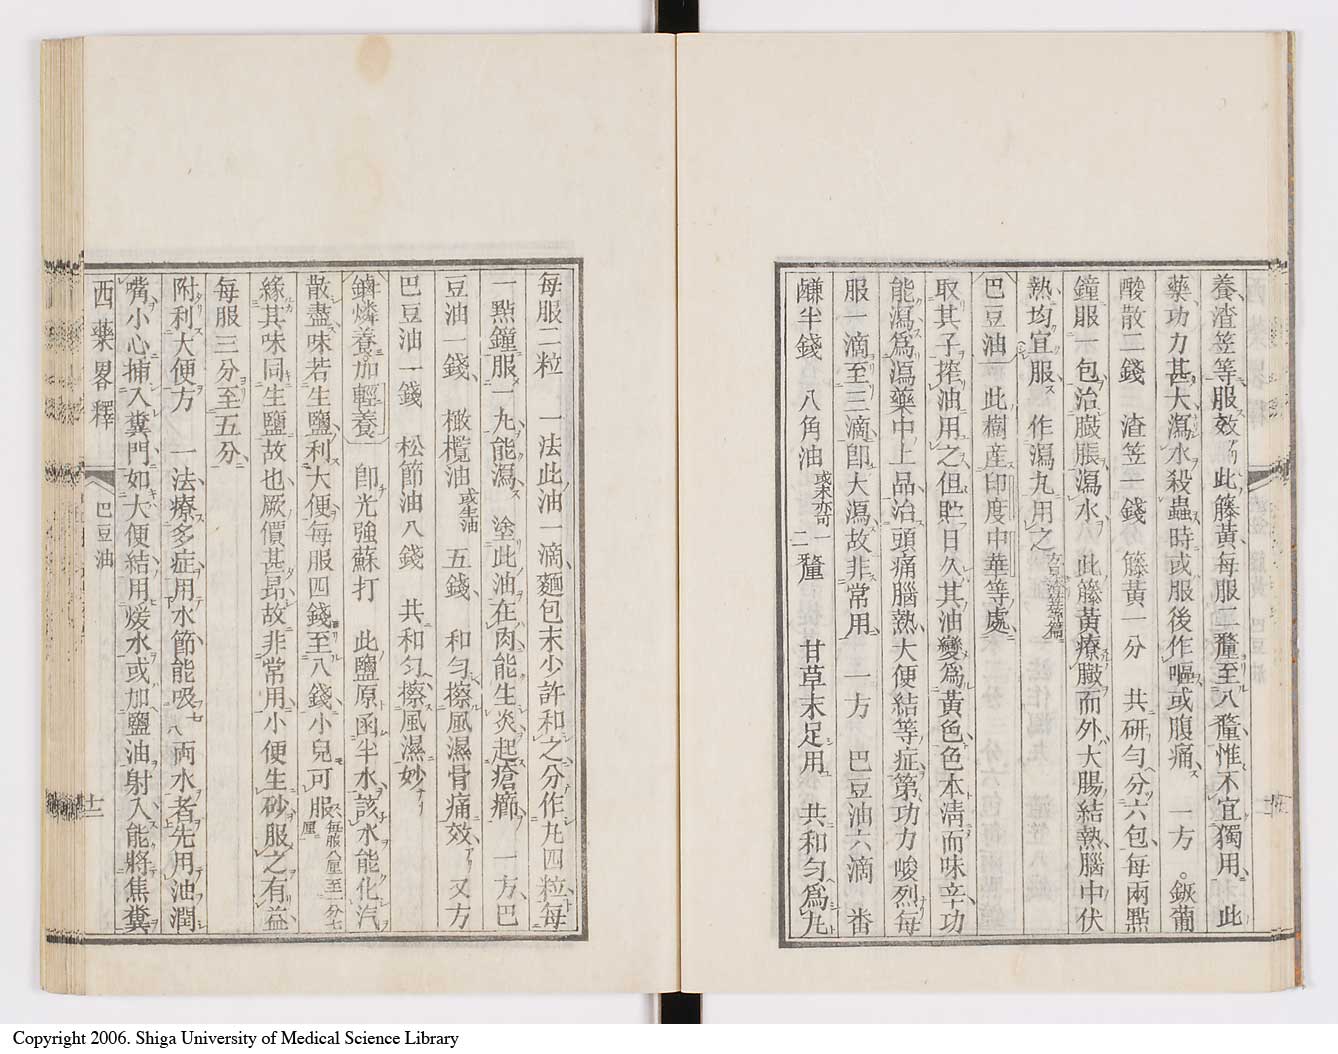 養渣笠等服效 此籐黄每服二釐至八釐惟不宜獨用 此
藥功力甚大瀉水殺蟲時或服後作嘔或腹痛 一方 鋏葡
酸散二錢 渣笠一錢 籐黄一分 共研勻分六包每兩㸃
鐘服一包治臌脹瀉水 此籐黄療臌而外大腸結熱腦中伏
熱均宜服 作瀉丸用之
巴豆油 此樹産印度中華等處
取其子搾油用之但貯日久其油變爲黄色色本淸而味辛功
能瀉爲瀉藥中上品治頭痛腦熱大便結等症第功力峻烈每
服一滴至三滴卽大瀉故非常用 一方 巴豆油六滴 畨
鹻半錢 八角油 或木䓫 一二釐 甘草末足用 共和勻爲丸
每服二粒 一法此油一滴麵包末少許和之分作丸四粒每
一㸃鐘服一丸能瀉 塗此油在肉能生炎起瘡癤 一方 巴
豆油一錢 橄欖油 或生油 五錢 和勻擦風濕骨痛效 又方
巴豆油一錢 松節油八錢 共和勻擦風濕妙
鏀燐養加輕養 卽光強蘇打 此鹽原函半水該水能化汽
散盡味若生鹽利大便每服四錢至八錢小兒可服 每服八厘至一分七厘
緣其味同生鹽故也厥價甚昂故非常用小便生砂服之有益
每服三分至五分
附利大便方 一法療多症用水節能吸七八兩水者先用油潤
嘴小心揷入糞門如大便結用煖水或加鹽油射入能將焦糞
西藥畧釋 巴豆油 十二
Copyright 2006. Shiga University of Medical Science Library